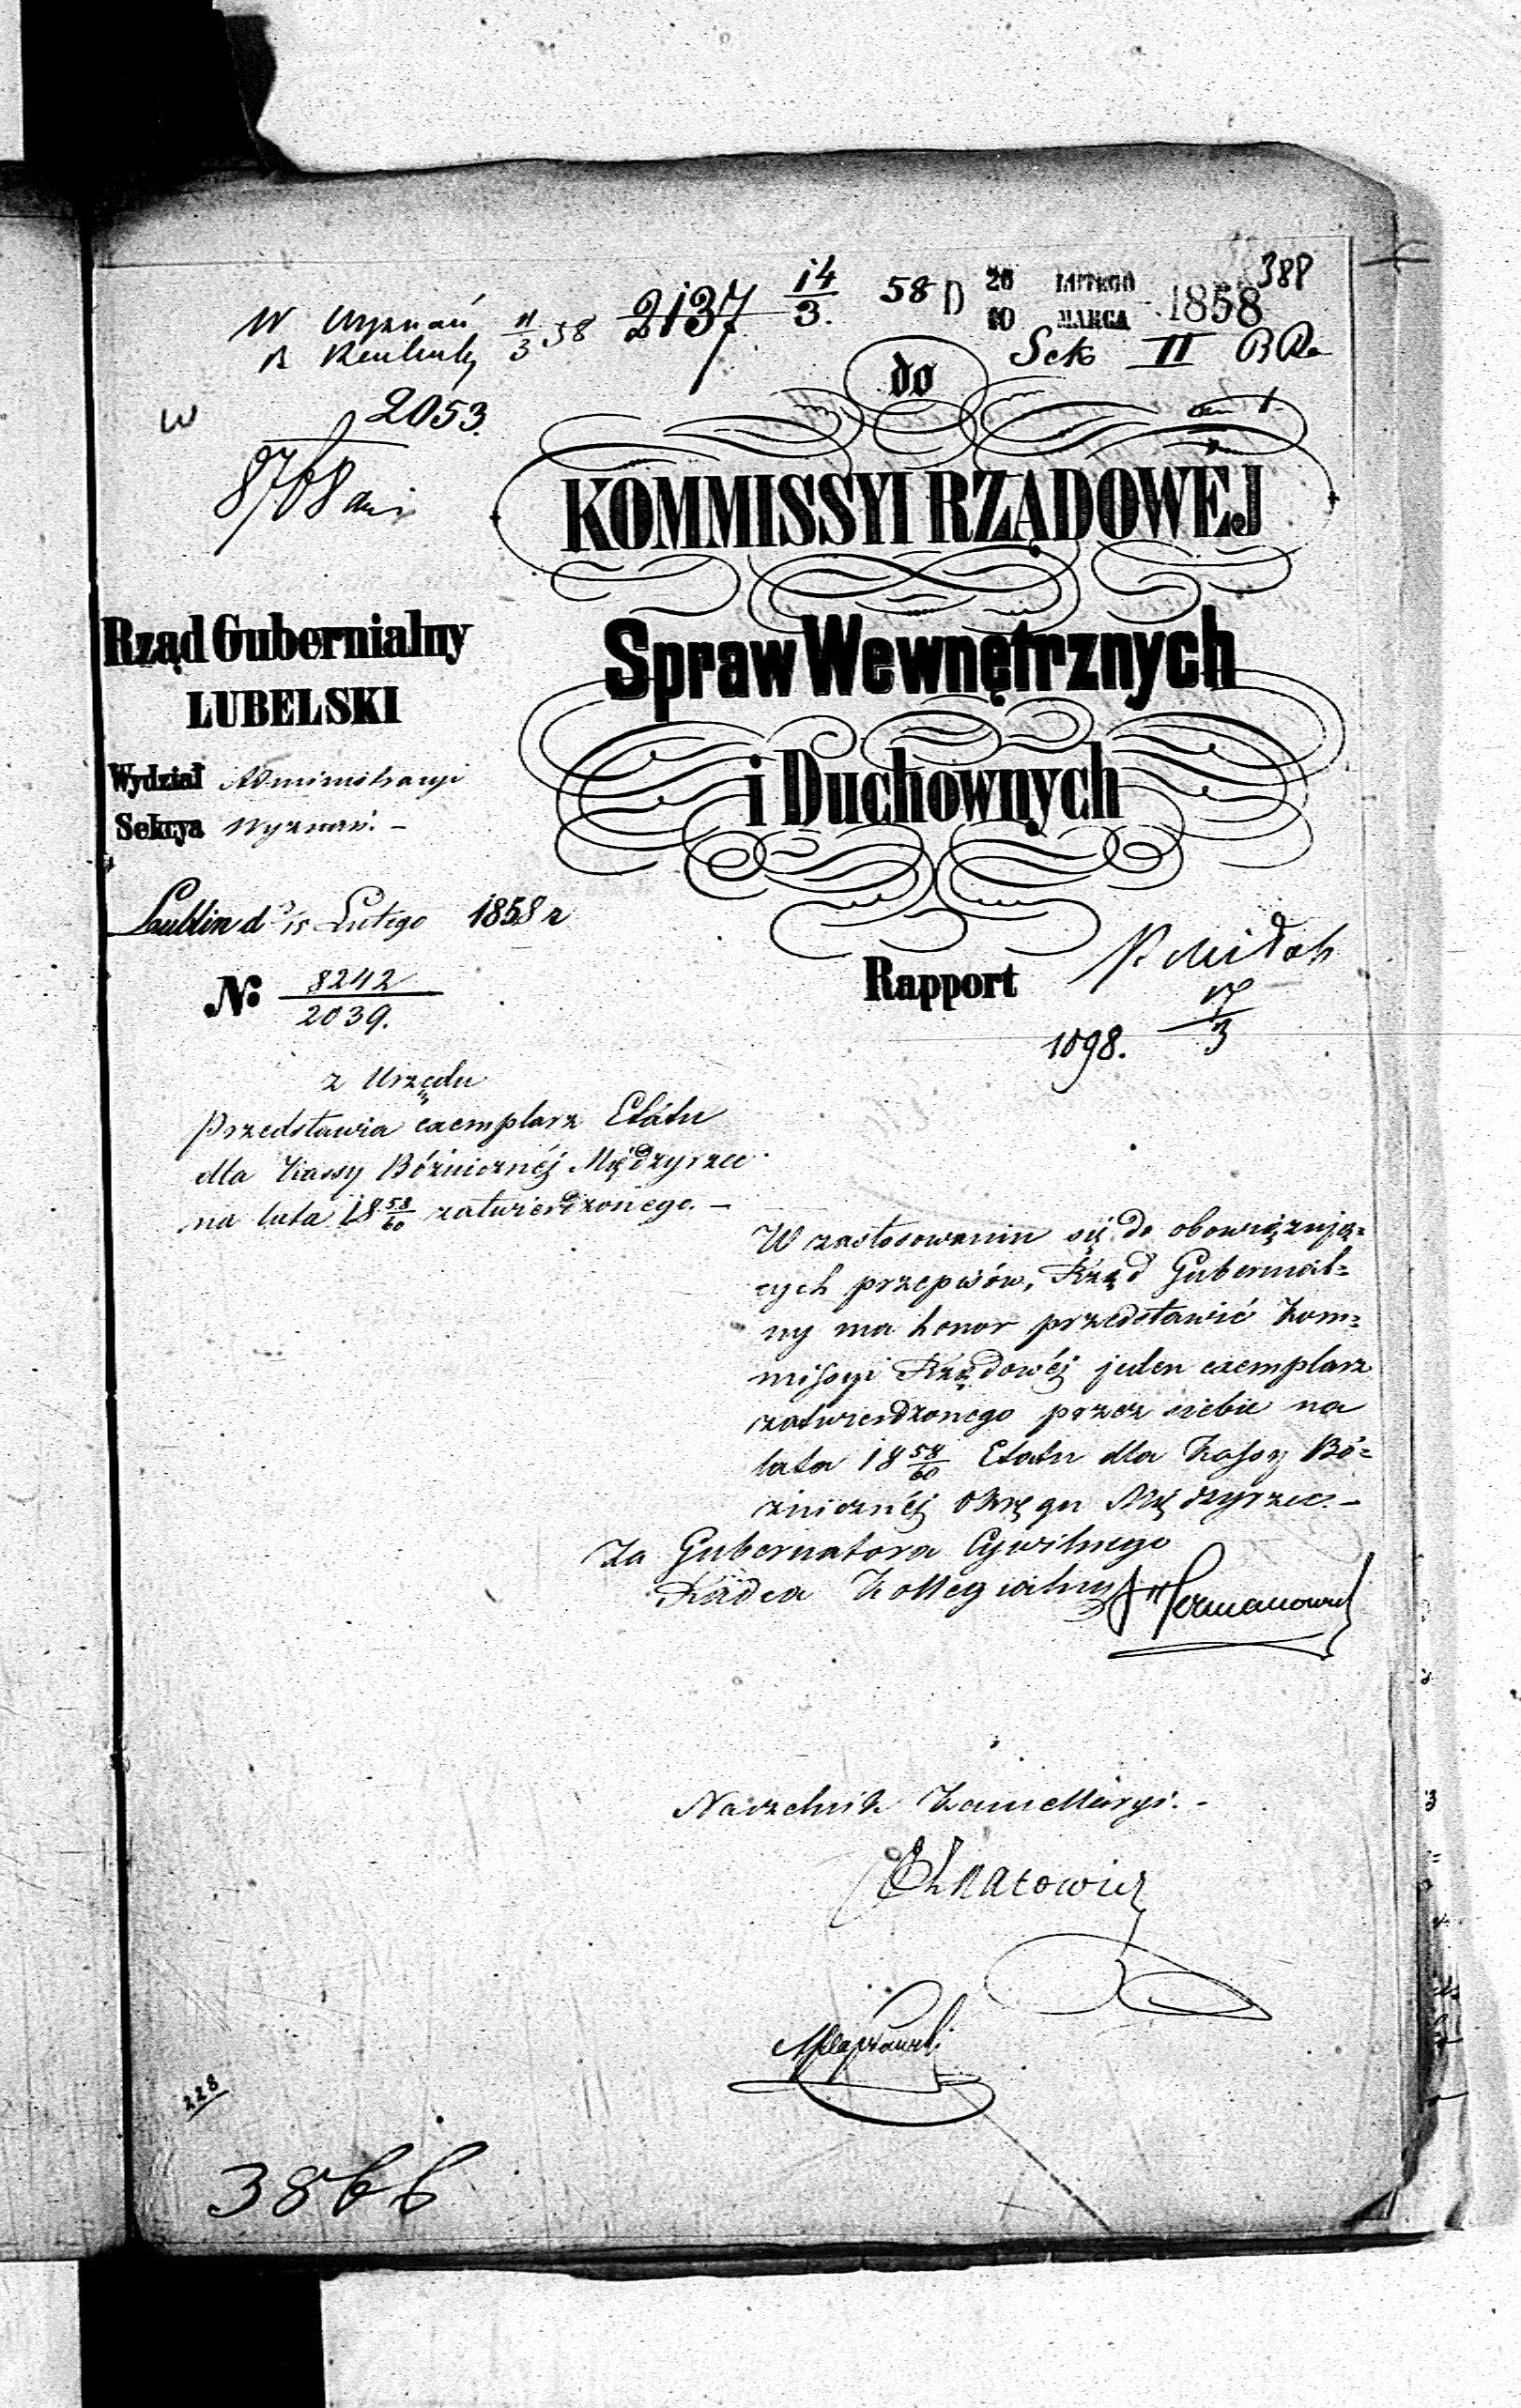 388
W Wyznań 11/3 58 2137 14/3. 58 D 26 LUTEGO 10 MARCA 1858
Sek II
do
W 2053.
8768
KOMMISSYI RZĄDOWÉJ
Spraw Wewnętrznych
i Duchownych
Rząd Gubernialny
LUBELSKI
Wydział Administracyi
Sekcya Wyznań. -
Lublin d 3/15 Lutego 1858 r
№ 8242/2039.
Rapport
17/3
1098.
z Urzędu
Przedstawia exemplarz Etátu
dla Kassy Bóżnicznéj Międzyrzec
na lata 18 58/60 zatwierdzonego. -
W zastosowaniu się do obowiązują=
cych przepisów, Rząd Gubernial=
ny ma honor przedstawić Kom=
missyi Rządowéj jeden exemplarz
zatwierdzonego przez siebie na
lata 18 58/60 Etatu dla Kassy Bó=
żnicznéj Okręgu Międzyrzec. -
Za Gubernatora Cywilnego
Radca Kollegialny Hermanowicz
Naczelnik Kancellaryi. -
228
3866